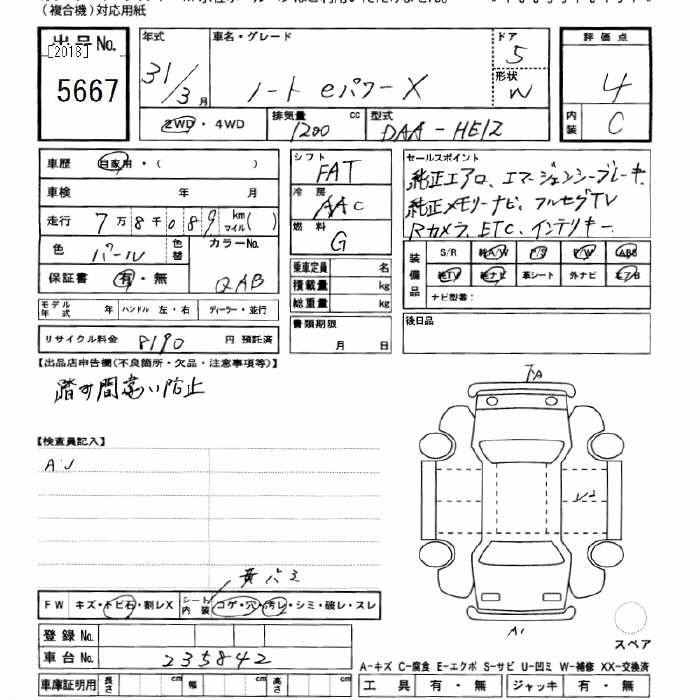 (複合機)対応用紙
出品No.
[2018]
5667
年式
31/3月
車名・グレード
ノート eパワーX
ドア
5
形状
W
評価点
4
内装
C
2WD・4WD
排気量
1200 cc
型式
DAA-HE12
車歴 自家用・( )
車検 年 月
走行 7万8千089 km マイル( )
色 パール 色替
カラーNo.
QAB
保証書 有・無
シフト
FAT
冷房
AAC
燃料
G
乗車定員 名
積載量 kg
総重量 kg
書類期限
月 日
セールスポイント
純正エアロ、エマージェンシーブレーキ
純正メモリーナビ、フルセグTV
Rカメラ、ETC、インテリキー
装備品
S/R 純A/W P/S P/W ABS
純TV 純ナビ 革シート 外ナビ エアB
ナビ型番:
後日品
モデル年式 年 ハンドル 左・右 ディーラー・並行
リサイクル料金 8190 円 預託済
【出品店申告欄(不良箇所・欠品・注意事項等)】
踏み間違い防止
【検査員記入】
AU
FW キズ・トビ石・割レX
シート内装 コゲ・穴・汚レ・シミ・破レ・スレ
登録No.
車台No. 235842
車庫証明用 長さ cm 幅 cm 高さ cm
A1
スペア
A-キズ C-腐食 E-エクボ S-サビ U-凹ミ W-補修 XX-交換済
工具 有・無 ジャッキ 有・無